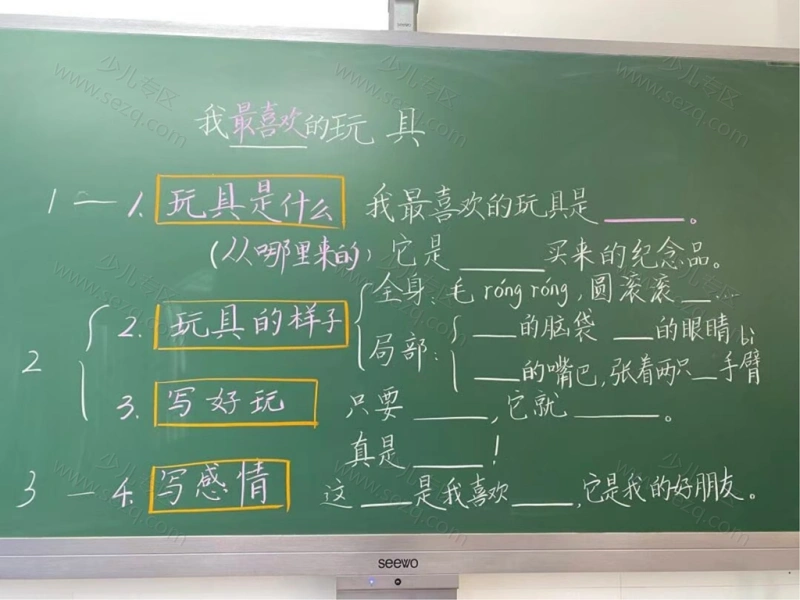 我最喜欢的玩具
1 — 1. 玩具是什么 我最喜欢的玩具是____。
(从哪里来的) 它是____买来的纪念品。
2 2. 玩具的样子 全身:毛róng róng,圆滚滚__…
局部: __的脑袋 __的眼睛
__的嘴巴,张着两只__手臂 bì
3. 写好玩 只要____,它就____。
真是____!
3 — 4. 写感情 这___是我喜欢____,它是我的好朋友。
seewo
少儿专区
www.sezq.com